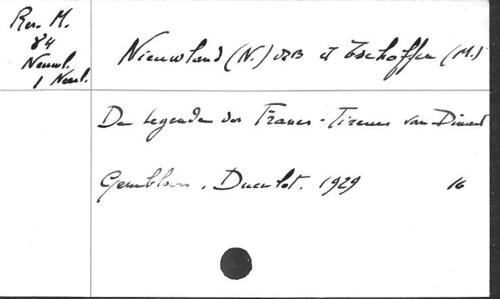 Res. M.
84
Neuwl.
1 Neerl.
Nieuwland (N.) OSB et Tschoffen (M.)
De Legende der Francs-Tireurs van Dinant
Gembloux, Duculot, 1929 16